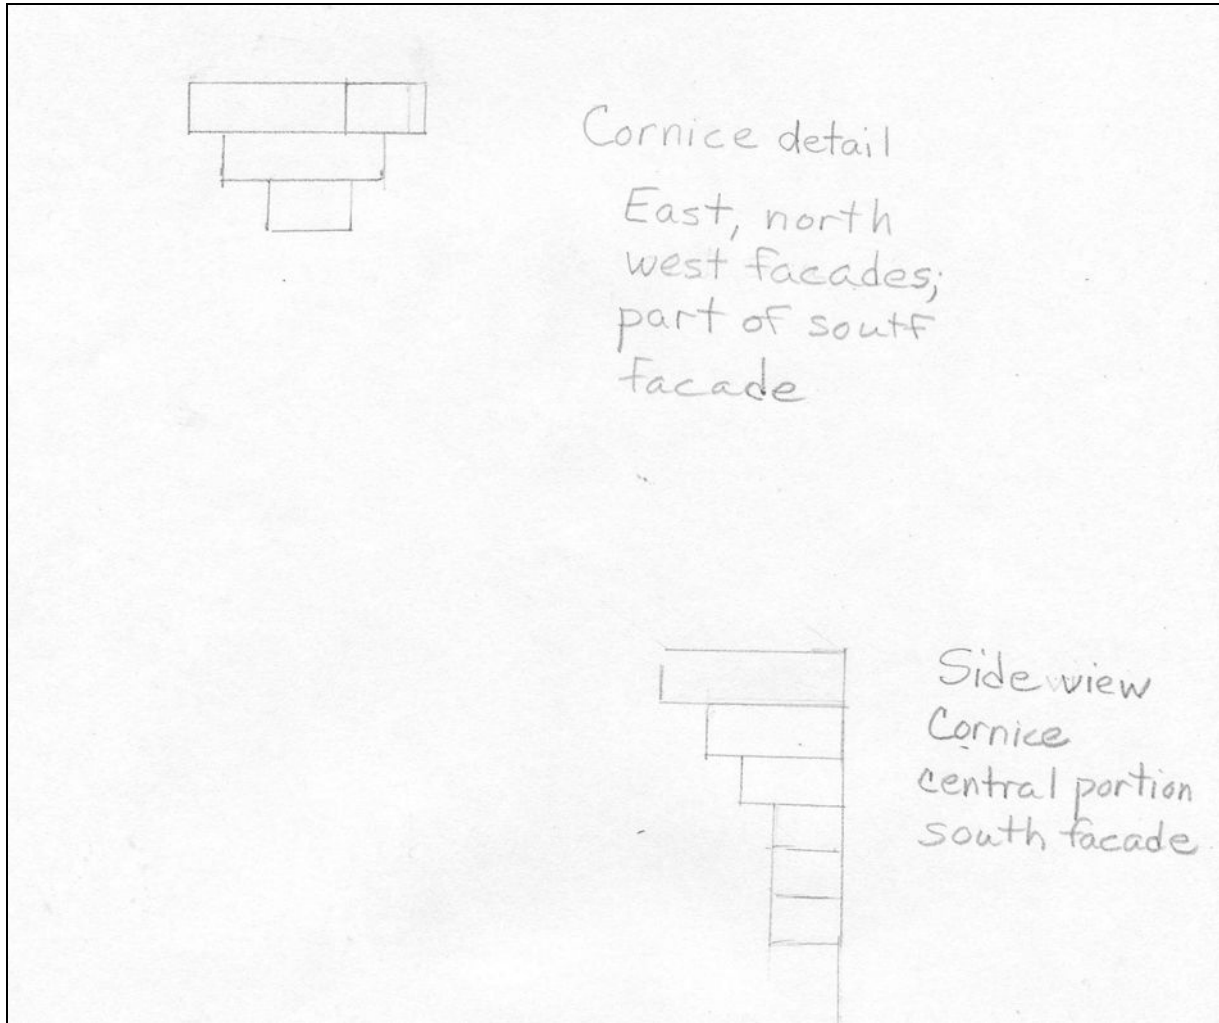 Cornice detail
East, north
west facades;
part of soutf
facade
Side view
Cornice
central portion
south facade